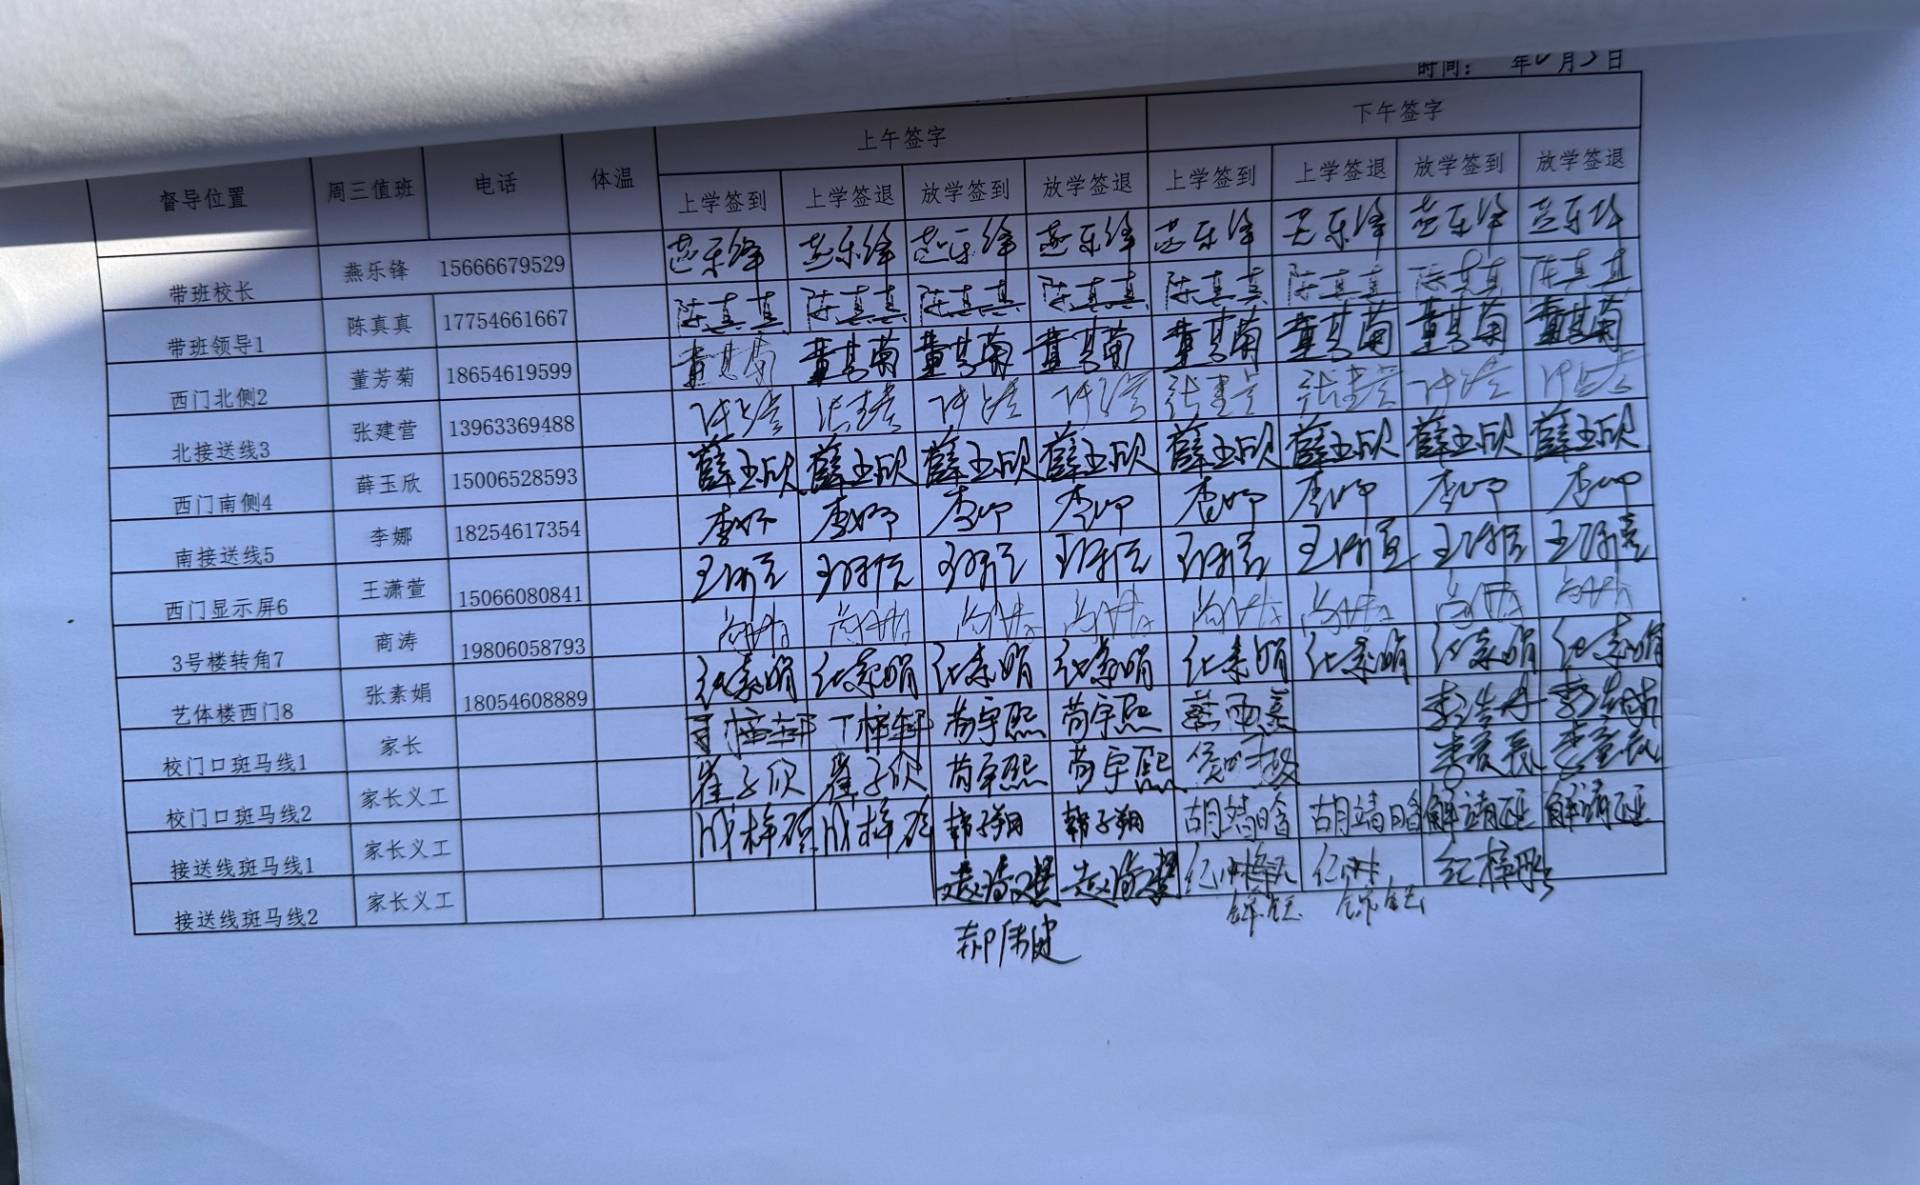 时间： 年 月3日
上午签字 下午签字
督导位置 周三值班 电话 体温 上学签到 上学签退 放学签到 放学签退 上学签到 上学签退 放学签到 放学签退
带班校长 燕乐锋 15666679529 燕乐锋 燕乐锋 燕乐锋 燕乐锋 燕乐锋 燕乐锋 燕乐锋 燕乐锋
带班领导1 陈真真 17754661667 陈真真 陈真真 陈真真 陈真真 陈真真 陈真真 陈真真 陈真真
西门北侧2 董芳菊 18654619599 董芳菊 董芳菊 董芳菊 董芳菊 董芳菊 董芳菊 董芳菊 董芳菊
北接送线3 张建营 13963369488 张建营 张建营 张建营 张建营 张建营 张建营 张建营 张建营
西门南侧4 薛玉欣 15006528593 薛玉欣 薛玉欣 薛玉欣 薛玉欣 薛玉欣 薛玉欣 薛玉欣 薛玉欣
南接送线5 李娜 18254617354 李娜 李娜 李娜 李娜 李娜 李娜 李娜 李娜
西门显示屏6 王潇萱 15066080841 王潇萱 王潇萱 王潇萱 王潇萱 王潇萱 王潇萱 王潇萱 王潇萱
3号楼转角7 商涛 19806058793
艺体楼西门8 张素娟 18054608889 张素娟 张素娟 张素娟 张素娟 张素娟 张素娟 张素娟 张素娟
校门口斑马线1 家长 丁梓轩 苟宇熙 苟宇熙
校门口斑马线2 家长义工 崔子欣 崔子欣 苟宇熙 苟宇熙
接送线斑马线1 家长义工 韩子翔 韩子翔 胡靖晗 胡靖晗 解靖砸 解靖砸
接送线斑马线2 家长义工